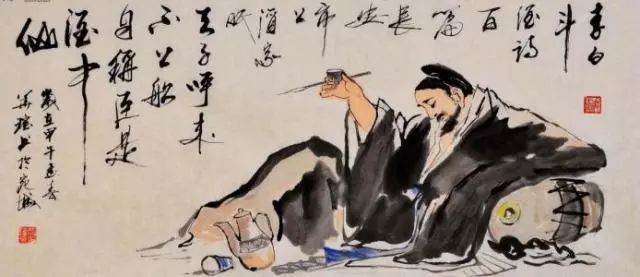 李白
斗
酒诗
百
篇
長
安
市
上
酒家
眠
天子呼来
不上船
自稱臣是
酒中
仙
歲在甲午